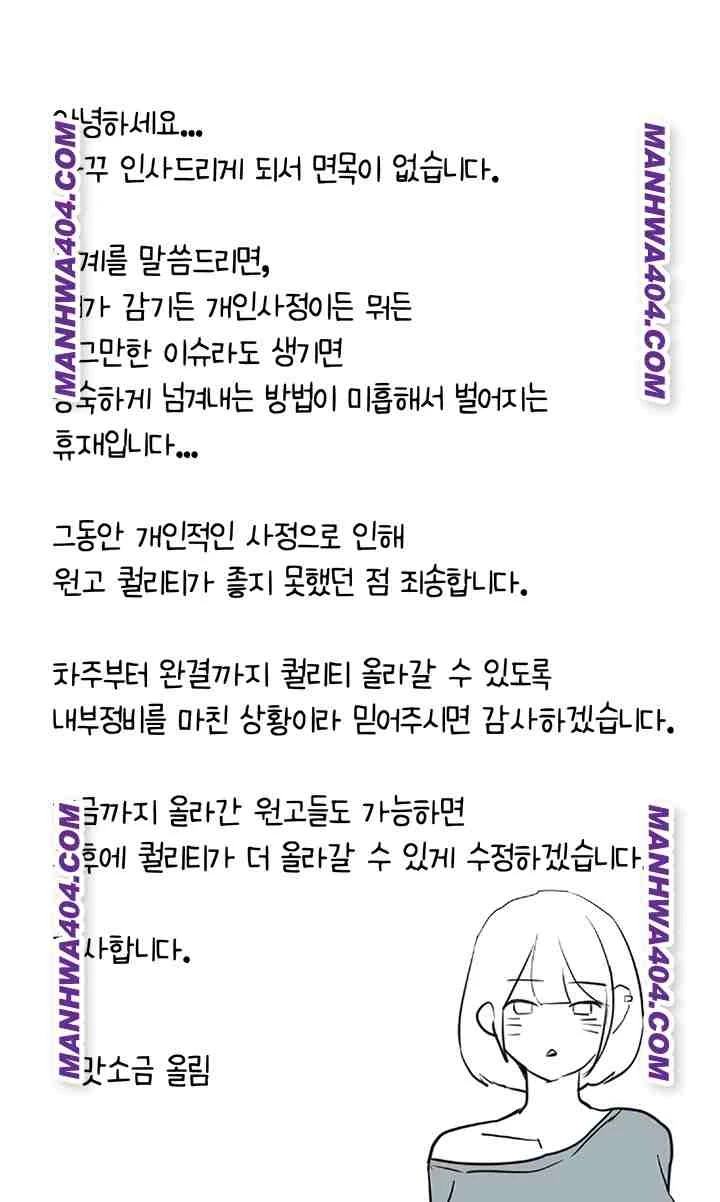 안녕하세요...
인사드리게 되서 면목이 없습니다.
말씀드리면,
감기든 개인사정이든 뭐든
이슈라도 생기면
넘겨내는 방법이 미흡해서 벌어지는
휴재입니다...
그동안 개인적인 사정으로 인해
원고 퀄리티가 좋지 못했던 점 죄송합니다.
차주부터 완결까지 퀄리티 올라갈 수 있도록
내부정비를 마친 상황이라 믿어주시면 감사하겠습니다.
올라간 원고들도 가능하면
퀄리티가 더 올라갈 수 있게 수정하겠습니다.
올림
MANHWA404.COM
MANHWA404.COM
MANHWA404.COM
MANHWA404.COM